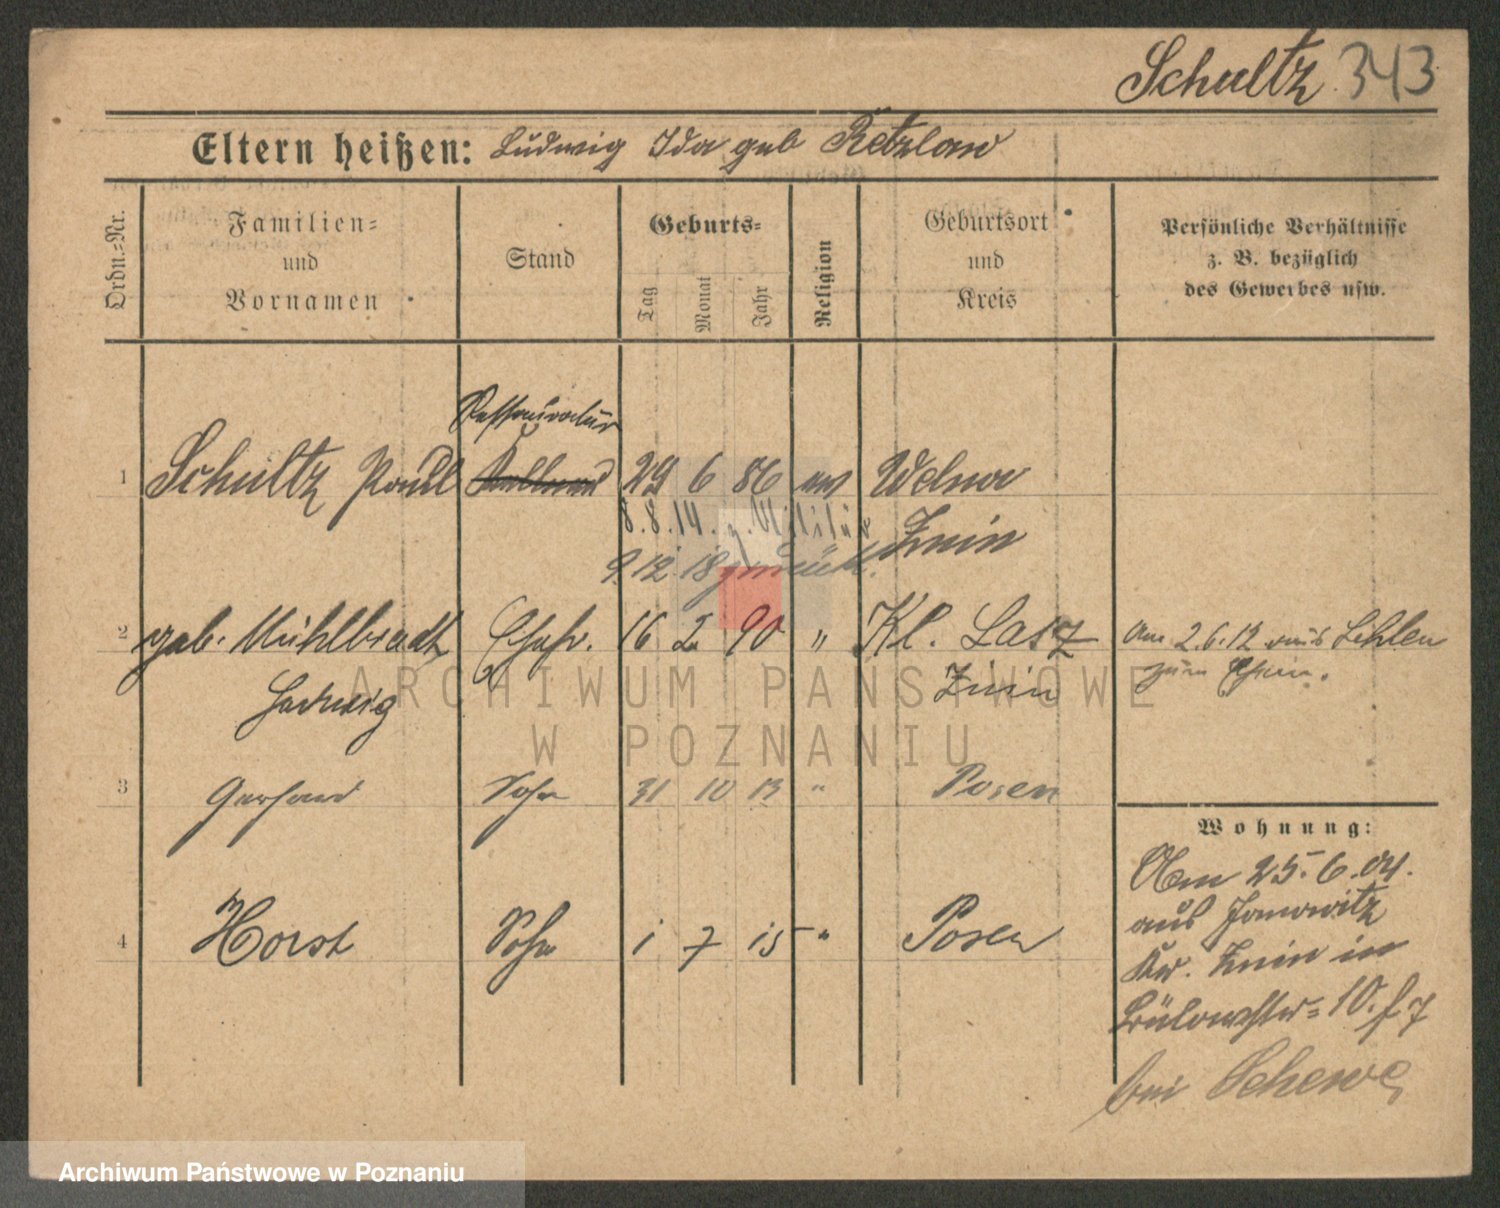 Schultz 343
Eltern heißen: Ludwig Ida geb Retzlaw
Ordn.=Nr.
Familien=
und
Vornamen
Stand
Geburts=
Tag
Monat
Jahr
Religion
Geburtsort
und
Kreis
Persönliche Verhältnisse
z. B. bezüglich
des Gewerbes usw.
Restaurateur
1 Schultz Paul Kellner 29 6 86 ev Welna
8.8.14. z. Militär Znin
9.12.18 zurück.
2 geb. Mühlbradt Ehefr. 16 2 90 " Kl. Lasz Am 2.6.12 aus
Hedwig Znin zum
3 Gerhard Sohn 31 10 13 " Posen
4 Horst Sohn 1 7 15 " Posen
Wohnung:
Am 25.6.04.
aus Janowitz
Kr. Znin in
Bülowstr= 10.
bei
ARCHIWUM PAŃSTWOWE
W POZNANIU
Archiwum Państwowe w Poznaniu